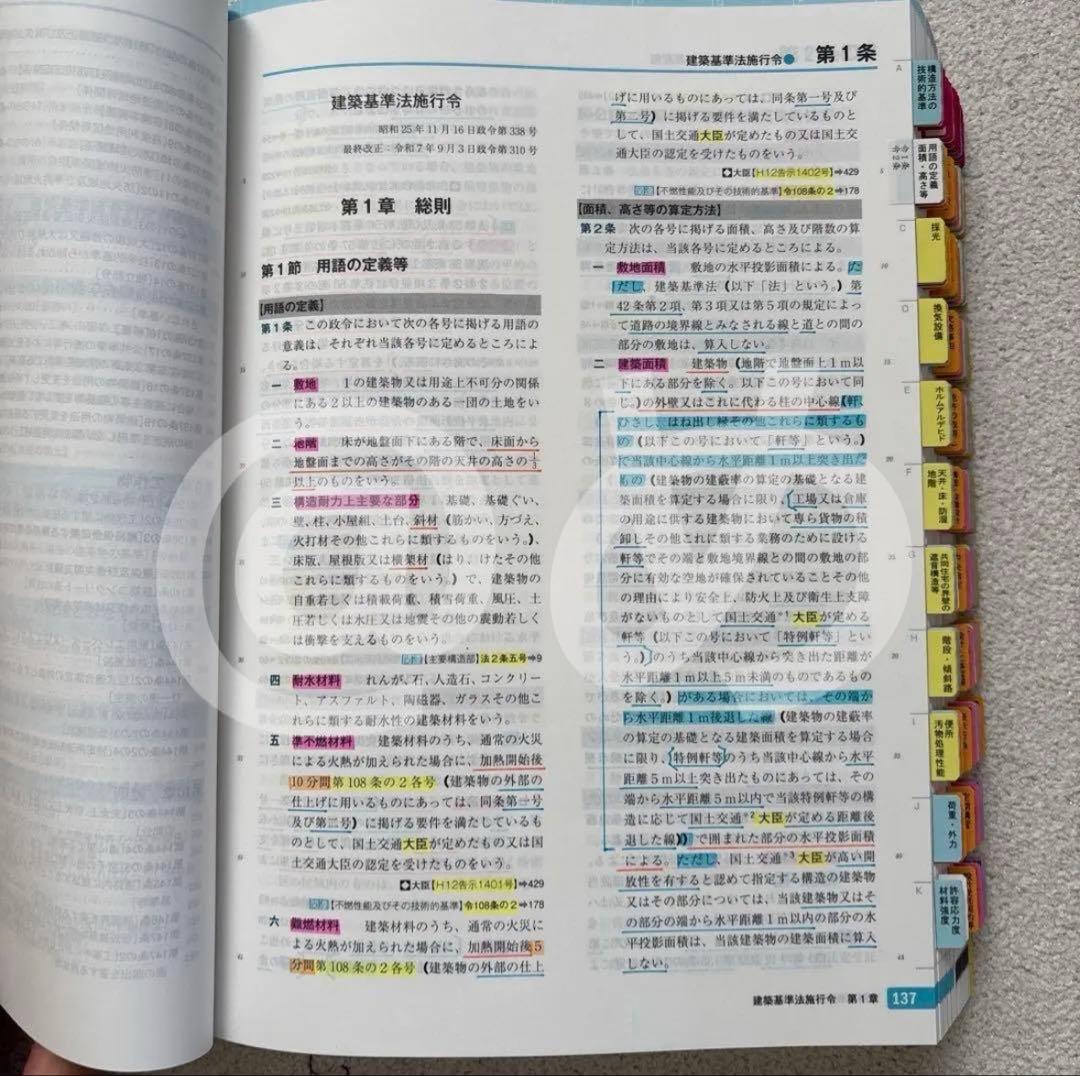 建築基準法施行令● 第1条
建築基準法施行令
昭和25年11月16日政令第338号
最終改正：令和7年9月3日政令第310号
第1章 総則
第1節 用語の定義等
【用語の定義】
第1条 この政令において次の各号に掲げる用語の
意義は、それぞれ当該各号に定めるところによ
る。
一 敷地 1の建築物又は用途上不可分の関係
にある2以上の建築物のある一団の土地をい
う。
二 地階 床が地盤面下にある階で、床面から
地盤面までの高さがその階の天井の高さの1/3
以上のものをいう。
三 構造耐力上主要な部分 基礎、基礎ぐい、
壁、柱、小屋組、土台、斜材（筋かい、方づえ、
火打材その他これらに類するものをいう。）、
床版、屋根版又は横架材（はり、けたその他
これらに類するものをいう。）で、建築物の
自重若しくは積載荷重、積雪荷重、風圧、土
圧若しくは水圧又は地震その他の震動若しく
は衝撃を支えるものをいう。
【主要構造部】法2条五号⇨9
四 耐水材料 れんが、石、人造石、コンクリー
ト、アスファルト、陶磁器、ガラスその他こ
れらに類する耐水性の建築材料をいう。
五 準不燃材料 建築材料のうち、通常の火災
による火熱が加えられた場合に、加熱開始後
10分間第108条の2各号（建築物の外部の
仕上げに用いるものにあっては、同条第一号
及び第二号）に掲げる要件を満たしているも
のとして、国土交通大臣が定めたもの又は国
土交通大臣の認定を受けたものをいう。
✚大臣【H12告示1401号】⇨429
【不燃性能及びその技術的基準】令108条の2⇨178
六 難燃材料 建築材料のうち、通常の火災に
よる火熱が加えられた場合に、加熱開始後5
分間第108条の2各号（建築物の外部の仕上
げに用いるものにあっては、同条第一号及び
第二号）に掲げる要件を満たしているものと
して、国土交通大臣が定めたもの又は国土交
通大臣の認定を受けたものをいう。
✚大臣【H12告示1402号】⇨429
【不燃性能及びその技術的基準】令108条の2⇨178
【面積、高さ等の算定方法】
第2条 次の各号に掲げる面積、高さ及び階数の算
定方法は、当該各号に定めるところによる。
一 敷地面積 敷地の水平投影面積による。た
だし、建築基準法（以下「法」という。）第
42条第2項、第3項又は第5項の規定によっ
て道路の境界線とみなされる線と道との間の
部分の敷地は、算入しない。
二 建築面積 建築物（地階で地盤面上1m以
下にある部分を除く。以下この号において同
じ。）の外壁又はこれに代わる柱の中心線（軒、
ひさし、はね出し縁その他これらに類するも
の（以下この号において「軒等」という。）
で当該中心線から水平距離1m以上突き出た
もの（建築物の建蔽率の算定の基礎となる建
築面積を算定する場合に限り、工場又は倉庫
の用途に供する建築物において専ら貨物の積
卸しその他これに類する業務のために設ける
軒等でその端と敷地境界線との間の敷地の部
分に有効な空地が確保されていることその他
の理由により安全上、防火上及び衛生上支障
がないものとして国土交通*1大臣が定める
軒等（以下この号において「特例軒等」とい
う。）のうち当該中心線から突き出た距離が
水平距離1m以上5m未満のものであるもの
を除く。）がある場合においては、その端か
ら水平距離1m後退した線（建築物の建蔽率
の算定の基礎となる建築面積を算定する場合
に限り、特例軒等のうち当該中心線から水平
距離5m以上突き出たものにあっては、その
端から水平距離5m以内で当該特例軒等の構
造に応じて国土交通*2大臣が定める距離後
退した線））で囲まれた部分の水平投影面積
による。ただし、国土交通*3大臣が高い開
放性を有すると認めて指定する構造の建築物
又はその部分については、当該建築物又はそ
の部分の端から水平距離1m以内の部分の水
平投影面積は、当該建築物の建築面積に算入
しない。
建築基準法施行令 第1章 137
A
構造方法の
技術的基準
用語の定義
面積・高さ等
C
採光
D
換気設備
E
ホルムアルデヒド
F
天井・床・防湿
地階
G
共同住宅の界壁の
遮音構造等
H
階段・傾斜路
I
便所
汚物処理性能
J
荷重・外力
K
許容応力度
材料強度